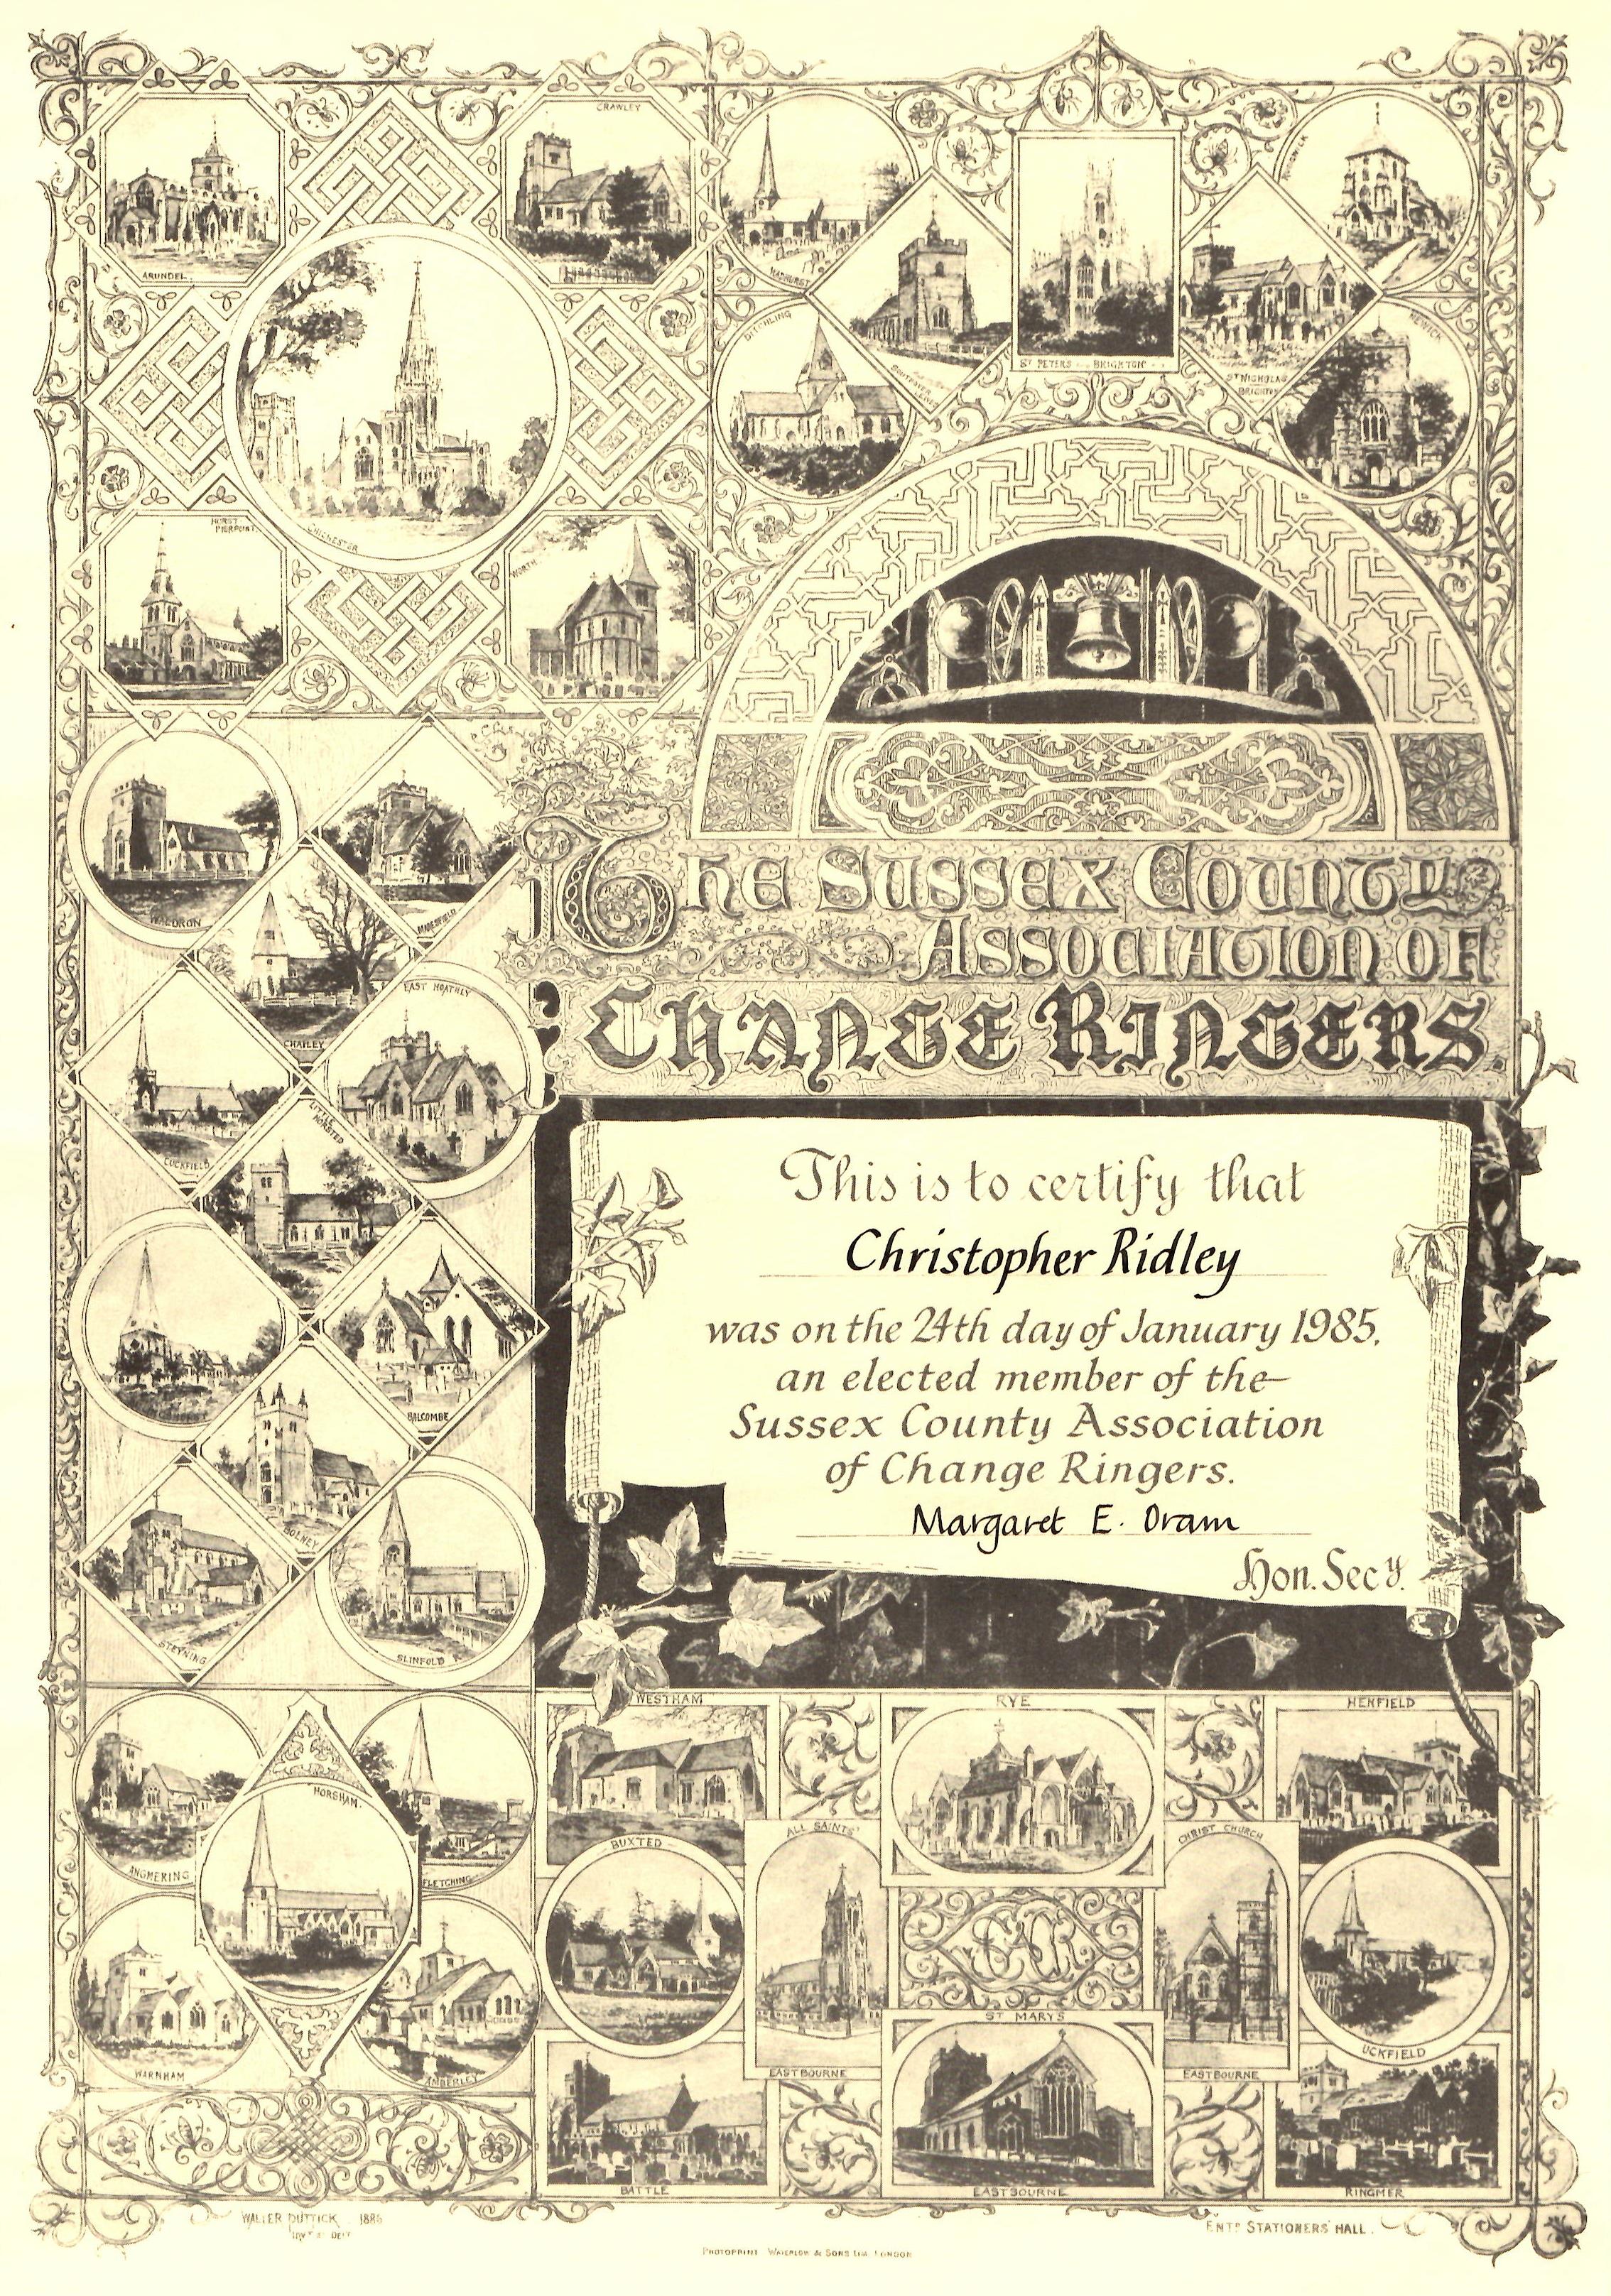 CRAWLEY
ARUNDEL
MIDHURST
ST PETERS BRIGHTON
ST NICHOLAS
BRIGHTON
DITCHLING
NEWICK
CHICHESTER
HURST
PIERPOINT
WORTH
The Sussex County
Association of
Change Ringers.
WALDRON
MARESFIELD
CHAILEY
EAST HOATHLY
CUCKFIELD
LITTLE
HORSTED
BALCOMBE
BOLNEY
STEYNING
SLINFOLD
This is to certify that
Christopher Ridley
was on the 24th day of January 1985,
an elected member of the
Sussex County Association
of Change Ringers.
Margaret E. Oram
Hon. Secy.
ANGMERING
HORSHAM.
FLETCHING
WARNHAM
AMBERLEY
WESTHAM
RYE
HENFIELD
BUXTED
ALL SAINTS'
EASTBOURNE
CHRIST CHURCH
EASTBOURNE
UCKFIELD
BATTLE
ST MARYS
EASTBOURNE
RINGMER
WALTER PUTTICK
ENTD STATIONERS' HALL.
PHOTOPRINT WATERLOW & SONS LTD LONDON